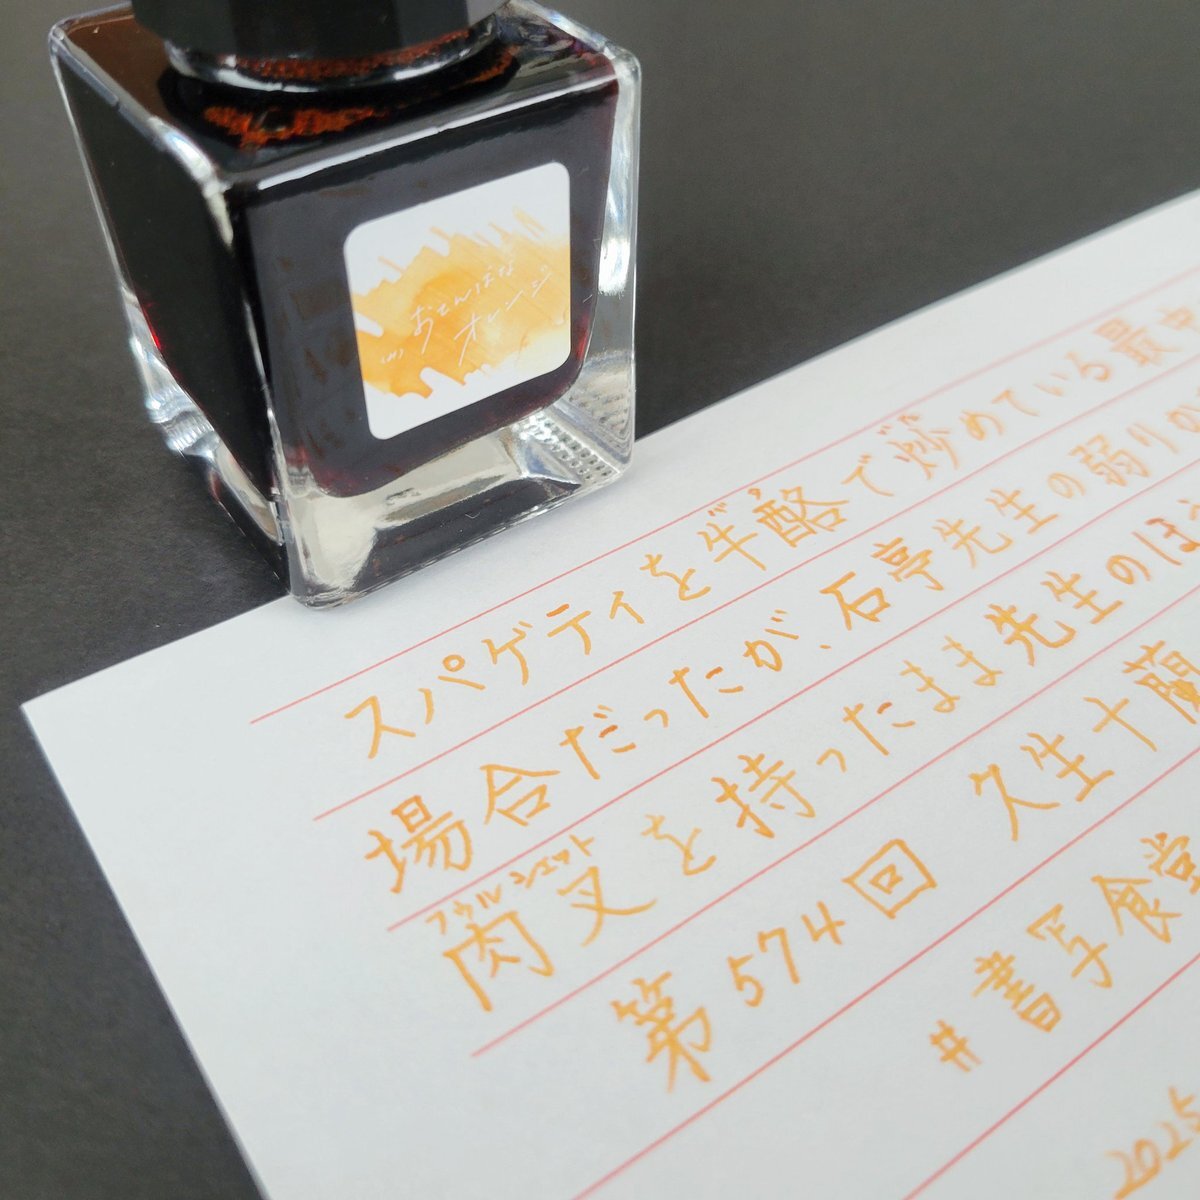 おてんばな
オレンジ
スパゲティを牛酪で炒めている最中
場合だったが、石亭先生の弱りか
フウルシェット
肉叉を持ったまま先生のほ
第574回 久生十蘭
#書写食堂
2025